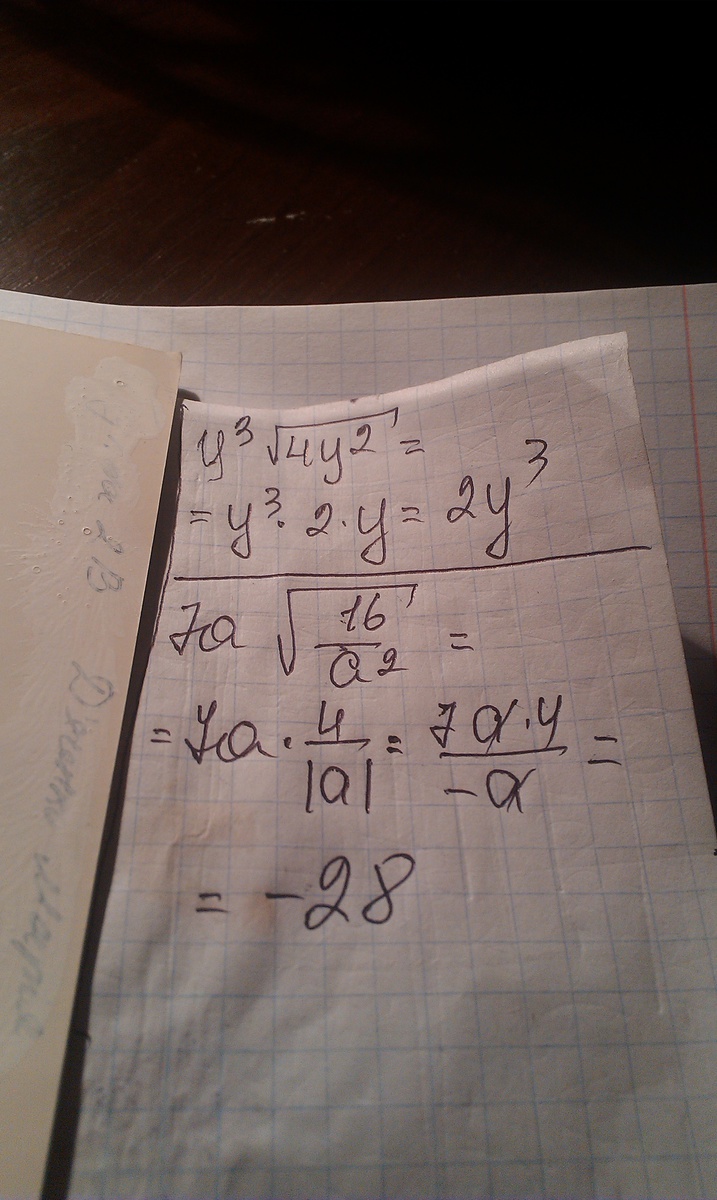 y³ √4y² =
= y³ · 2 · y = 2y³
7a √16/a² =
= 7a · 4/|a| = 7a·4/-a =
= -28